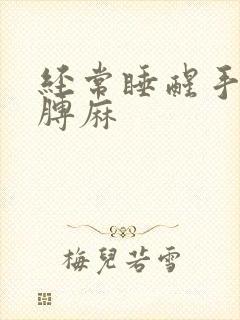 经常睡醒手
膊麻
梅兒若雪